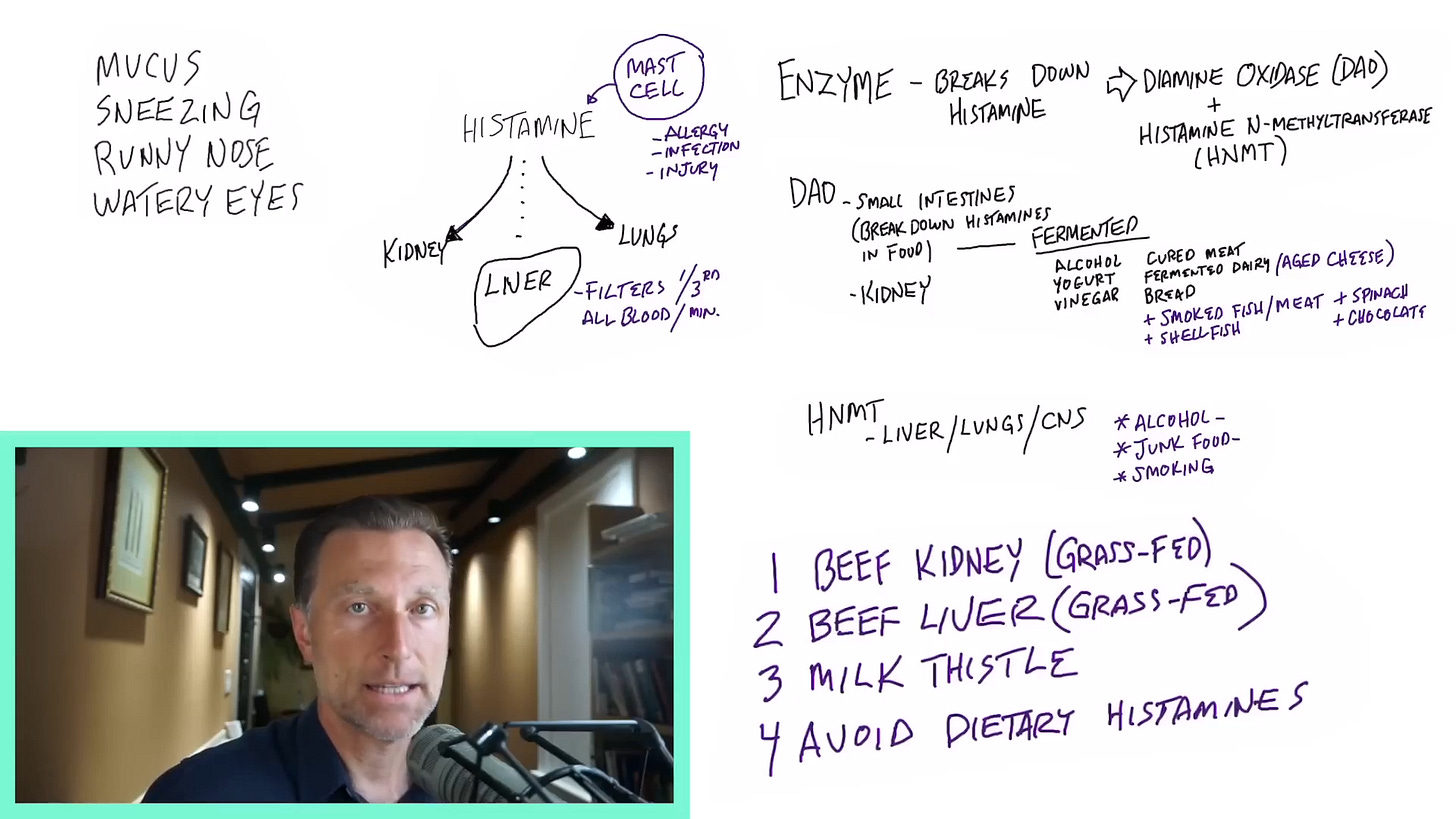 MUCUS
SNEEZING
RUNNY NOSE
WATERY EYES
MAST
CELL
HISTAMINE
- ALLERGY
- INFECTION
- INJURY
KIDNEY
LUNGS
LIVER
- FILTERS 1/3RD
ALL BLOOD/MIN.
ENZYME - BREAKS DOWN ⇨ DIAMINE OXIDASE (DAO)
HISTAMINE
+
HISTAMINE N-METHYLTRANSFERASE
(HNMT)
DAO - SMALL INTESTINES
(BREAK DOWN HISTAMINES
IN FOOD)
- KIDNEY
FERMENTED
ALCOHOL
YOGURT
VINEGAR
CURED MEAT
FERMENTED DAIRY (AGED CHEESE)
BREAD
+ SMOKED FISH/MEAT
+ SHELLFISH
+ SPINACH
+ CHOCOLATE
HNMT
- LIVER/LUNGS/CNS
* ALCOHOL -
* JUNK FOOD -
* SMOKING
1 BEEF KIDNEY (GRASS-FED)
2 BEEF LIVER (GRASS-FED)
3 MILK THISTLE
4 AVOID DIETARY HISTAMINES